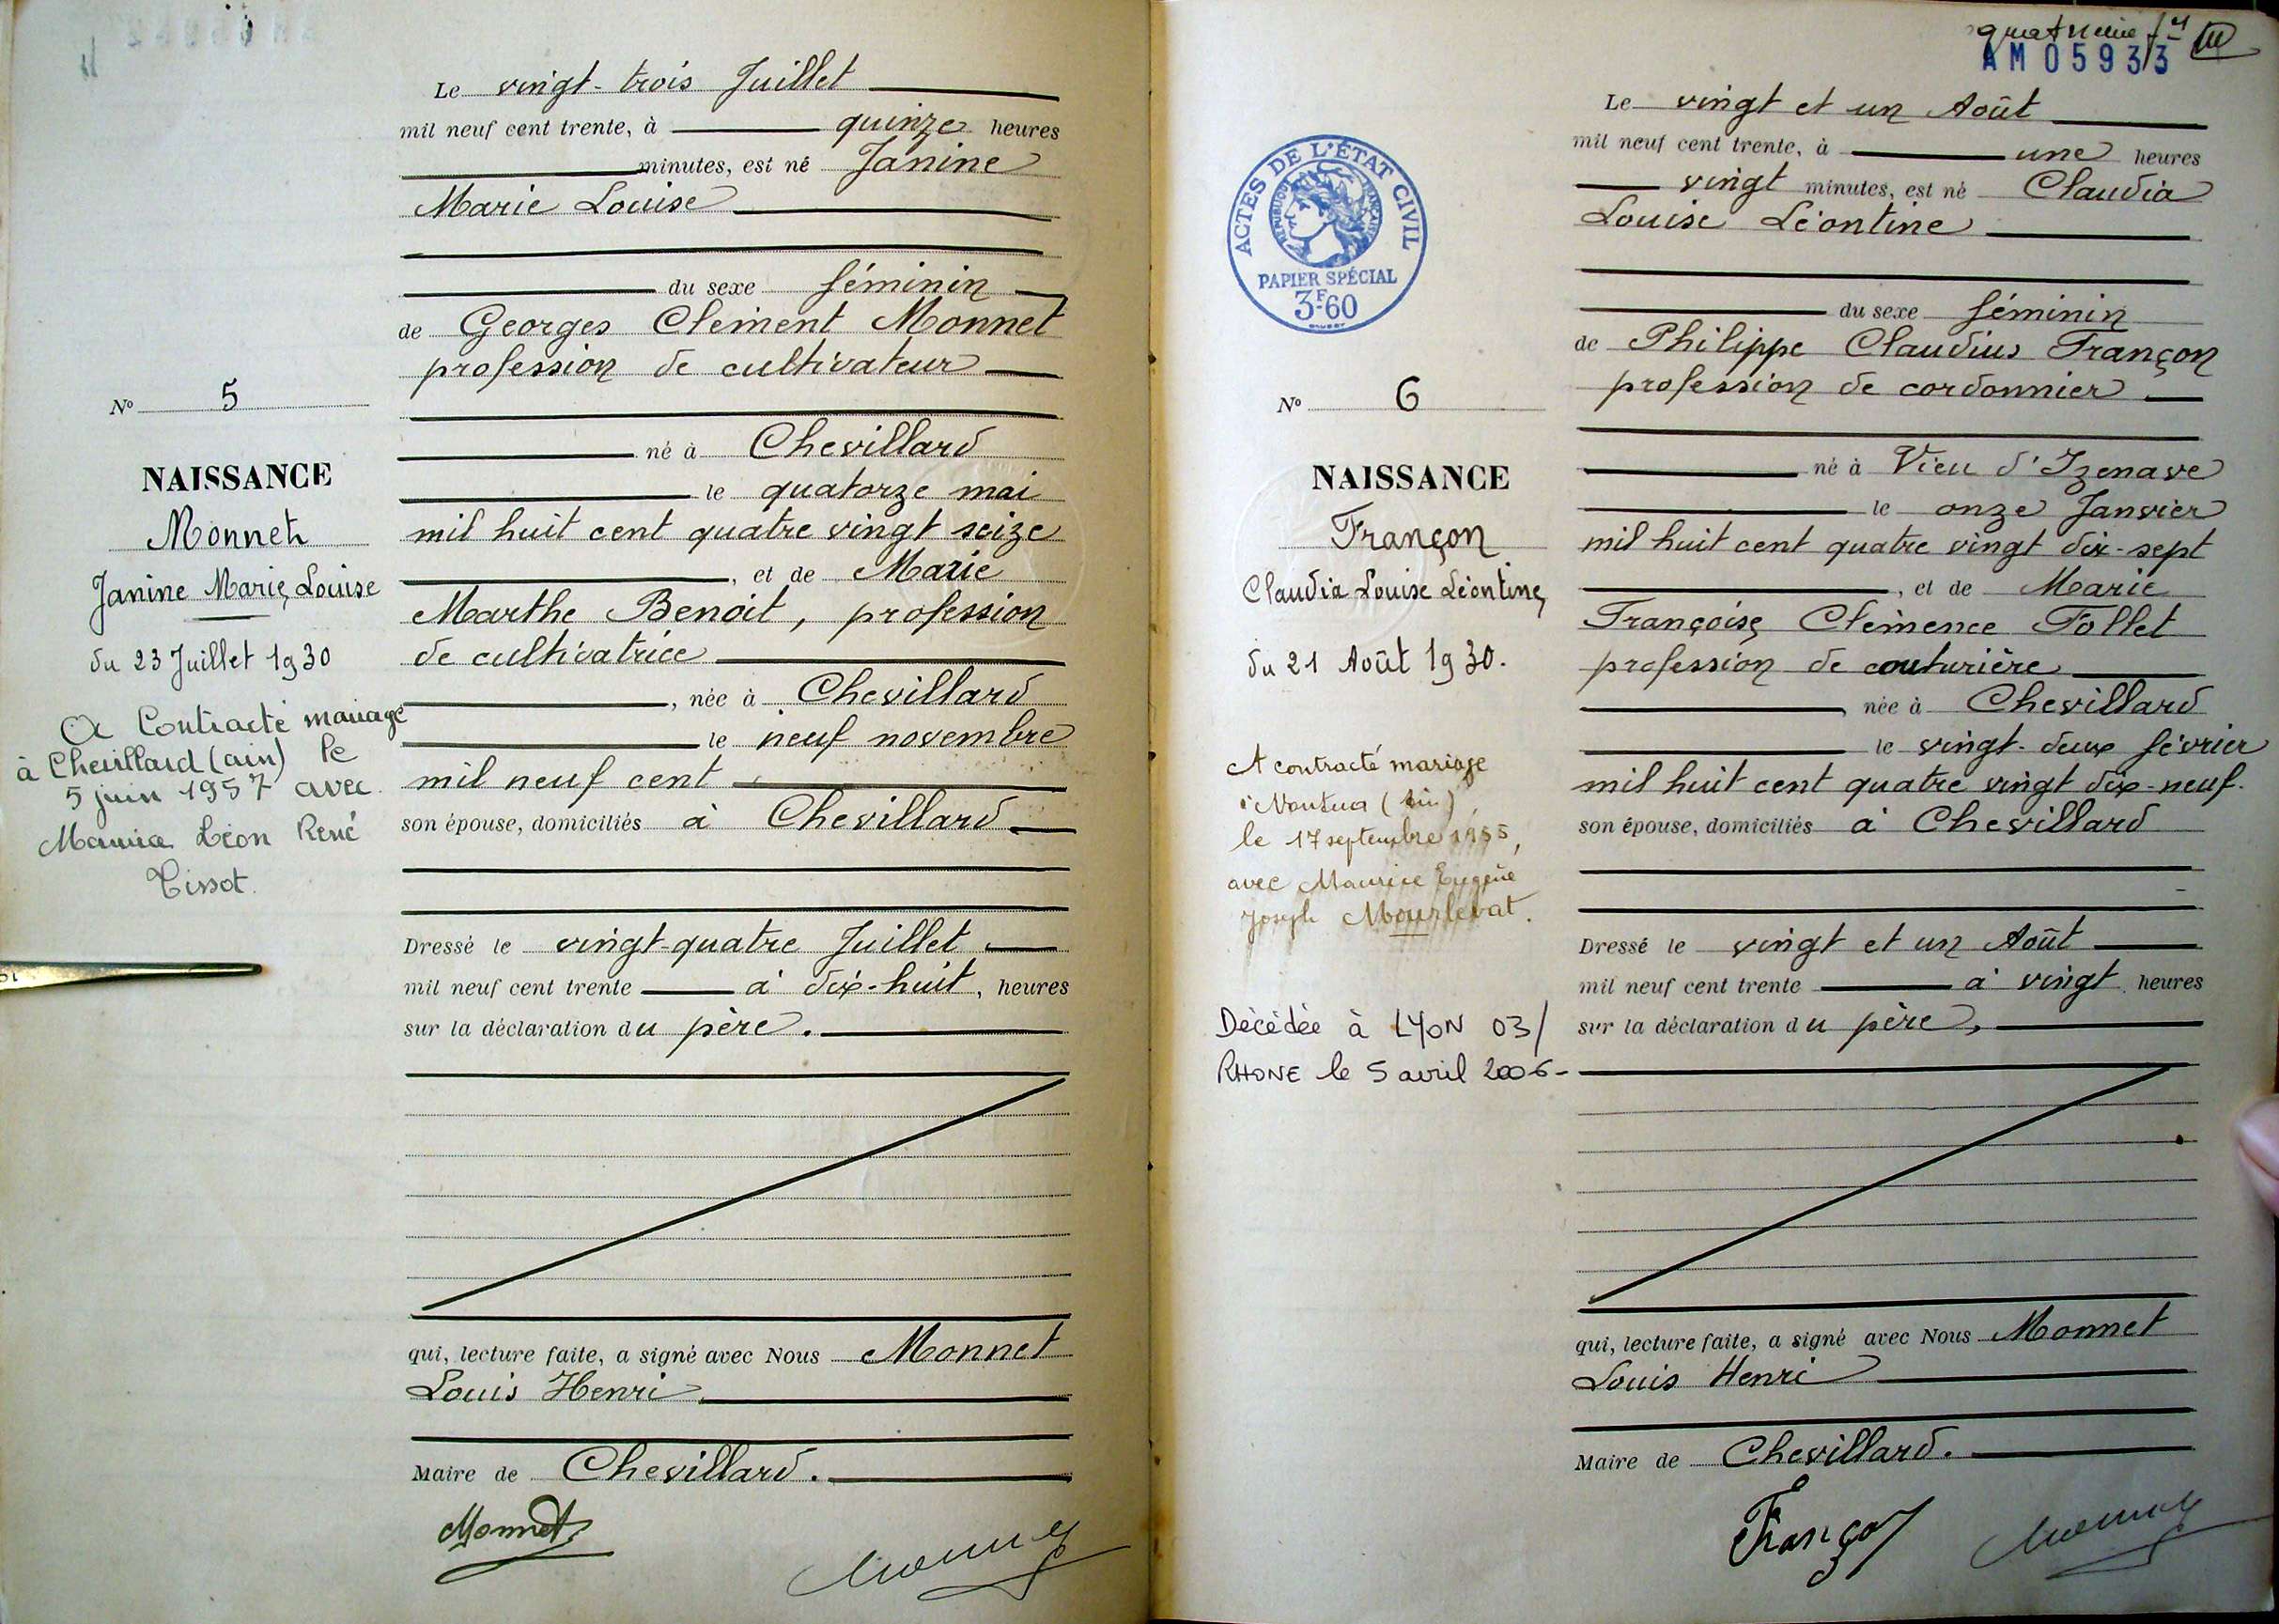 Le vingt-trois Juillet
mil neuf cent trente, à quinze heures
minutes, est né Janine
Marie Louise
du sexe féminin
de Georges Clément Monnet
profession de cultivateur
né à Chevillard
le quatorze mai
mil huit cent quatre vingt seize
, et de Marie
Marthe Benoit, profession
de cultivatrice
, née à Chevillard
le neuf novembre
mil neuf cent
son épouse, domiciliés à Chevillard
Dressé le vingt-quatre Juillet
mil neuf cent trente à dix-huit, heures
sur la déclaration du père.
qui, lecture faite, a signé avec Nous Monnet
Louis Henri
Maire de Chevillard.
Monnet
No 5
NAISSANCE
Monnet
Janine Marie, Louise
du 23 Juillet 1930
A Contracté mariage
à Chevillard (ain) le
5 juin 1957 avec
Maurice Léon René
Tissot.
quatrième
AM05933
Le vingt et un Août
mil neuf cent trente, à une heures
vingt minutes, est né Claudia
Louise Léontine
du sexe féminin
de Philippe Claudius Françon
profession de cordonnier
né à Vieu d'Izenave
le onze Janvier
mil huit cent quatre vingt dix-sept
, et de Marie
Françoise, Clémence Follet
profession de couturière
, née à Chevillard
le vingt-deux février
mil huit cent quatre vingt dix-neuf.
son épouse, domiciliés à Chevillard
Dressé le vingt et un Août
mil neuf cent trente à vingt heures
sur la déclaration du père,
qui, lecture faite, a signé avec Nous Monnet
Louis Henri
Maire de Chevillard.
Françon
ACTES DE L'ÉTAT CIVIL
RÉPUBLIQUE FRANÇAISE
PAPIER SPÉCIAL
3F.60
No 6
NAISSANCE
Françon
Claudia Louise Léontine,
du 21 Août 1930.
A contracté mariage
à Nantua (Ain),
le 17 septembre 1955,
avec Maurice Eugène
Joseph Mourlevat.
Décédée à LYON 03/
RHONE le 5 avril 2006-